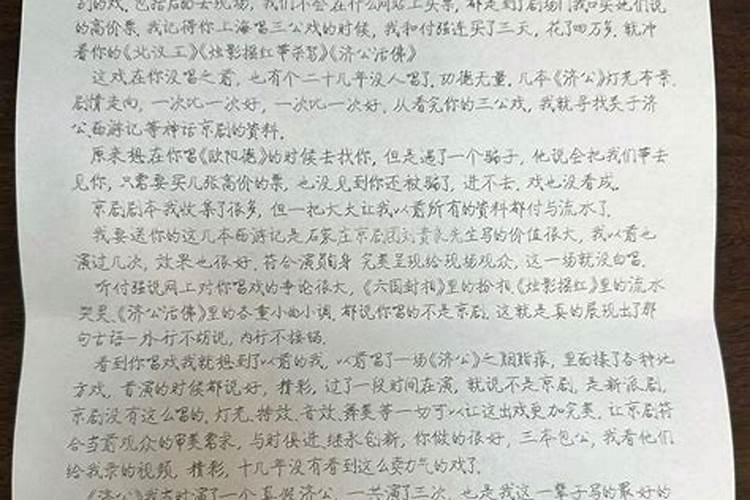 别的戏，包括后面去现场，我们不会在什么网站上买票，都是到了剧场门口买她们说
的高价票，我记得你上海唱三公戏的时候，我和付强连买了三天，花了四万多，就冲
看你的《北汉王》《烛影摇红带杀驾》《济公活佛》
这戏在你没唱之前，也有个二十几年没人唱了，功德无量，几本《济公》灯光布景
剧情走向，一次比一次好，一次比一次好，从看完你的三公戏，我就寻找关于济
公西游记等神话京剧的资料，
原来想在你唱《欧阳德》的时候去找你，但是遇了一个骗子，他说会把我们带去
见你，只需要买几张高价的票，也没见到你还被骗了，进不去，戏也没看成，
京剧剧本我收集了很多，但一把大火让我以前所有的资料都付与流水了，
我要送你的这几本西游记是石家庄京剧团刘贵先生写的价值很大，我以前也
演过几次，效果也很好，符合演员自身 完美呈现给现场观众，这一场就没白唱，
听付强说网上对你唱戏的争论很大，《六国封相》里的扮相《烛影摇红》里的流水
哭灵，《济公活佛》里的各重小曲小调，都说你唱的不是京剧，这就是真的展现出了那
句古语－外行不胡说，内行不接锅，
看到你唱戏我就想到了以前的我，以前唱了一场《济公》之胭脂痕，里面揉了各种地
方戏，首演的时候都说好，精彩，过了一段时间在演，就说不是京剧，是新派剧，
京剧没有这么唱的，灯光，特效，音效，舞美等一切可以让这出戏更加完美，让京剧符
合当前观众的审美需求，与时俱进，继承创新，你做的很好，三本包公，我看他们
给我录的视频，精彩，十几年没有看到这么卖力气的戏了，
《济公》我当时演了一个真假济公，一共演了三次，也是我这一辈子写的最好的